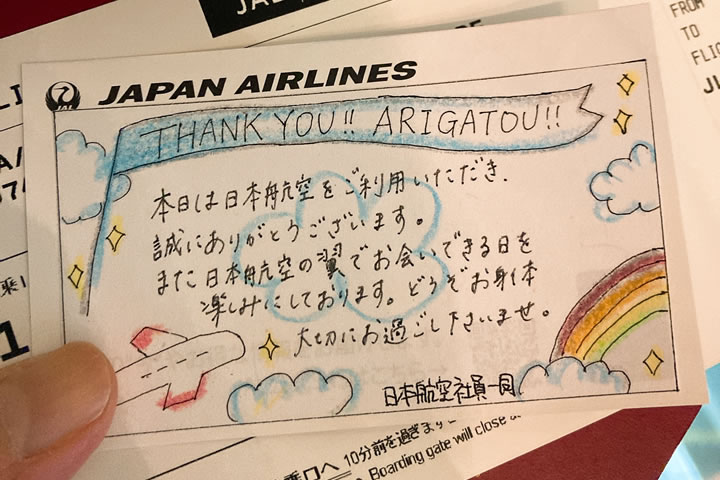 JAPAN AIRLINES
JAL
THANK YOU!! ARIGATOU!!
本日は日本航空をご利用いただき、
誠にありがとうございます。
また日本航空の翼でお会いできる日を
楽しみにしております。どうぞお身体
大切にお過ごし下さいませ。
日本航空社員一同
FROM
TO
10分前を過ぎま
Boarding gate will close a